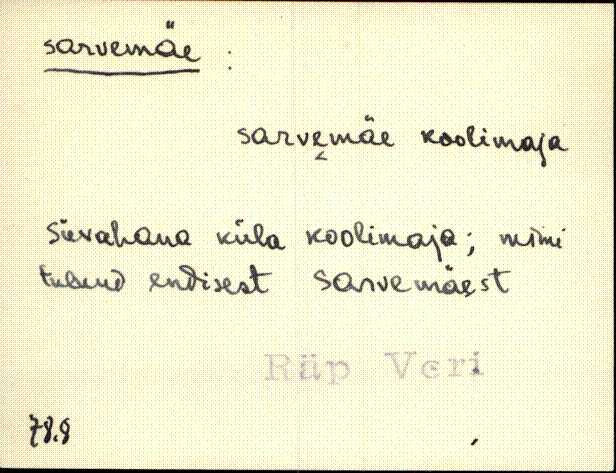 sarvemäe :
sarvemäe koolimaja
Süvahana küla koolimaja; nimi
tulnud endisest Sarvemäest
Räp Veri
78.8